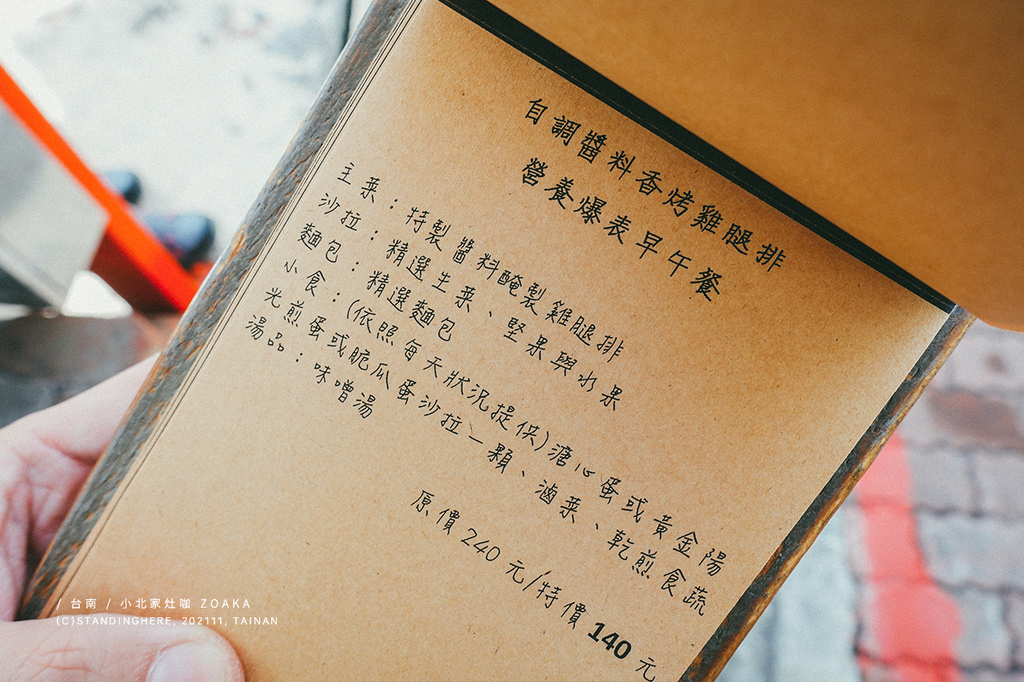 自調醬料香烤雞腿排
營養爆表早午餐
主菜：特製醬料醃製雞腿排
沙拉：精選生菜、堅果與水果
麵包：精選麵包
小食：(依照每天狀況提供)溏心蛋或黃金陽
光煎蛋或脆瓜蛋沙拉一顆、滷菜、乾煎食蔬
湯品：味噌湯
原價240元/特價140元
/ 台南 / 小北家灶咖 ZOAKA
(C)STANDINGHERE, 202111, TAINAN